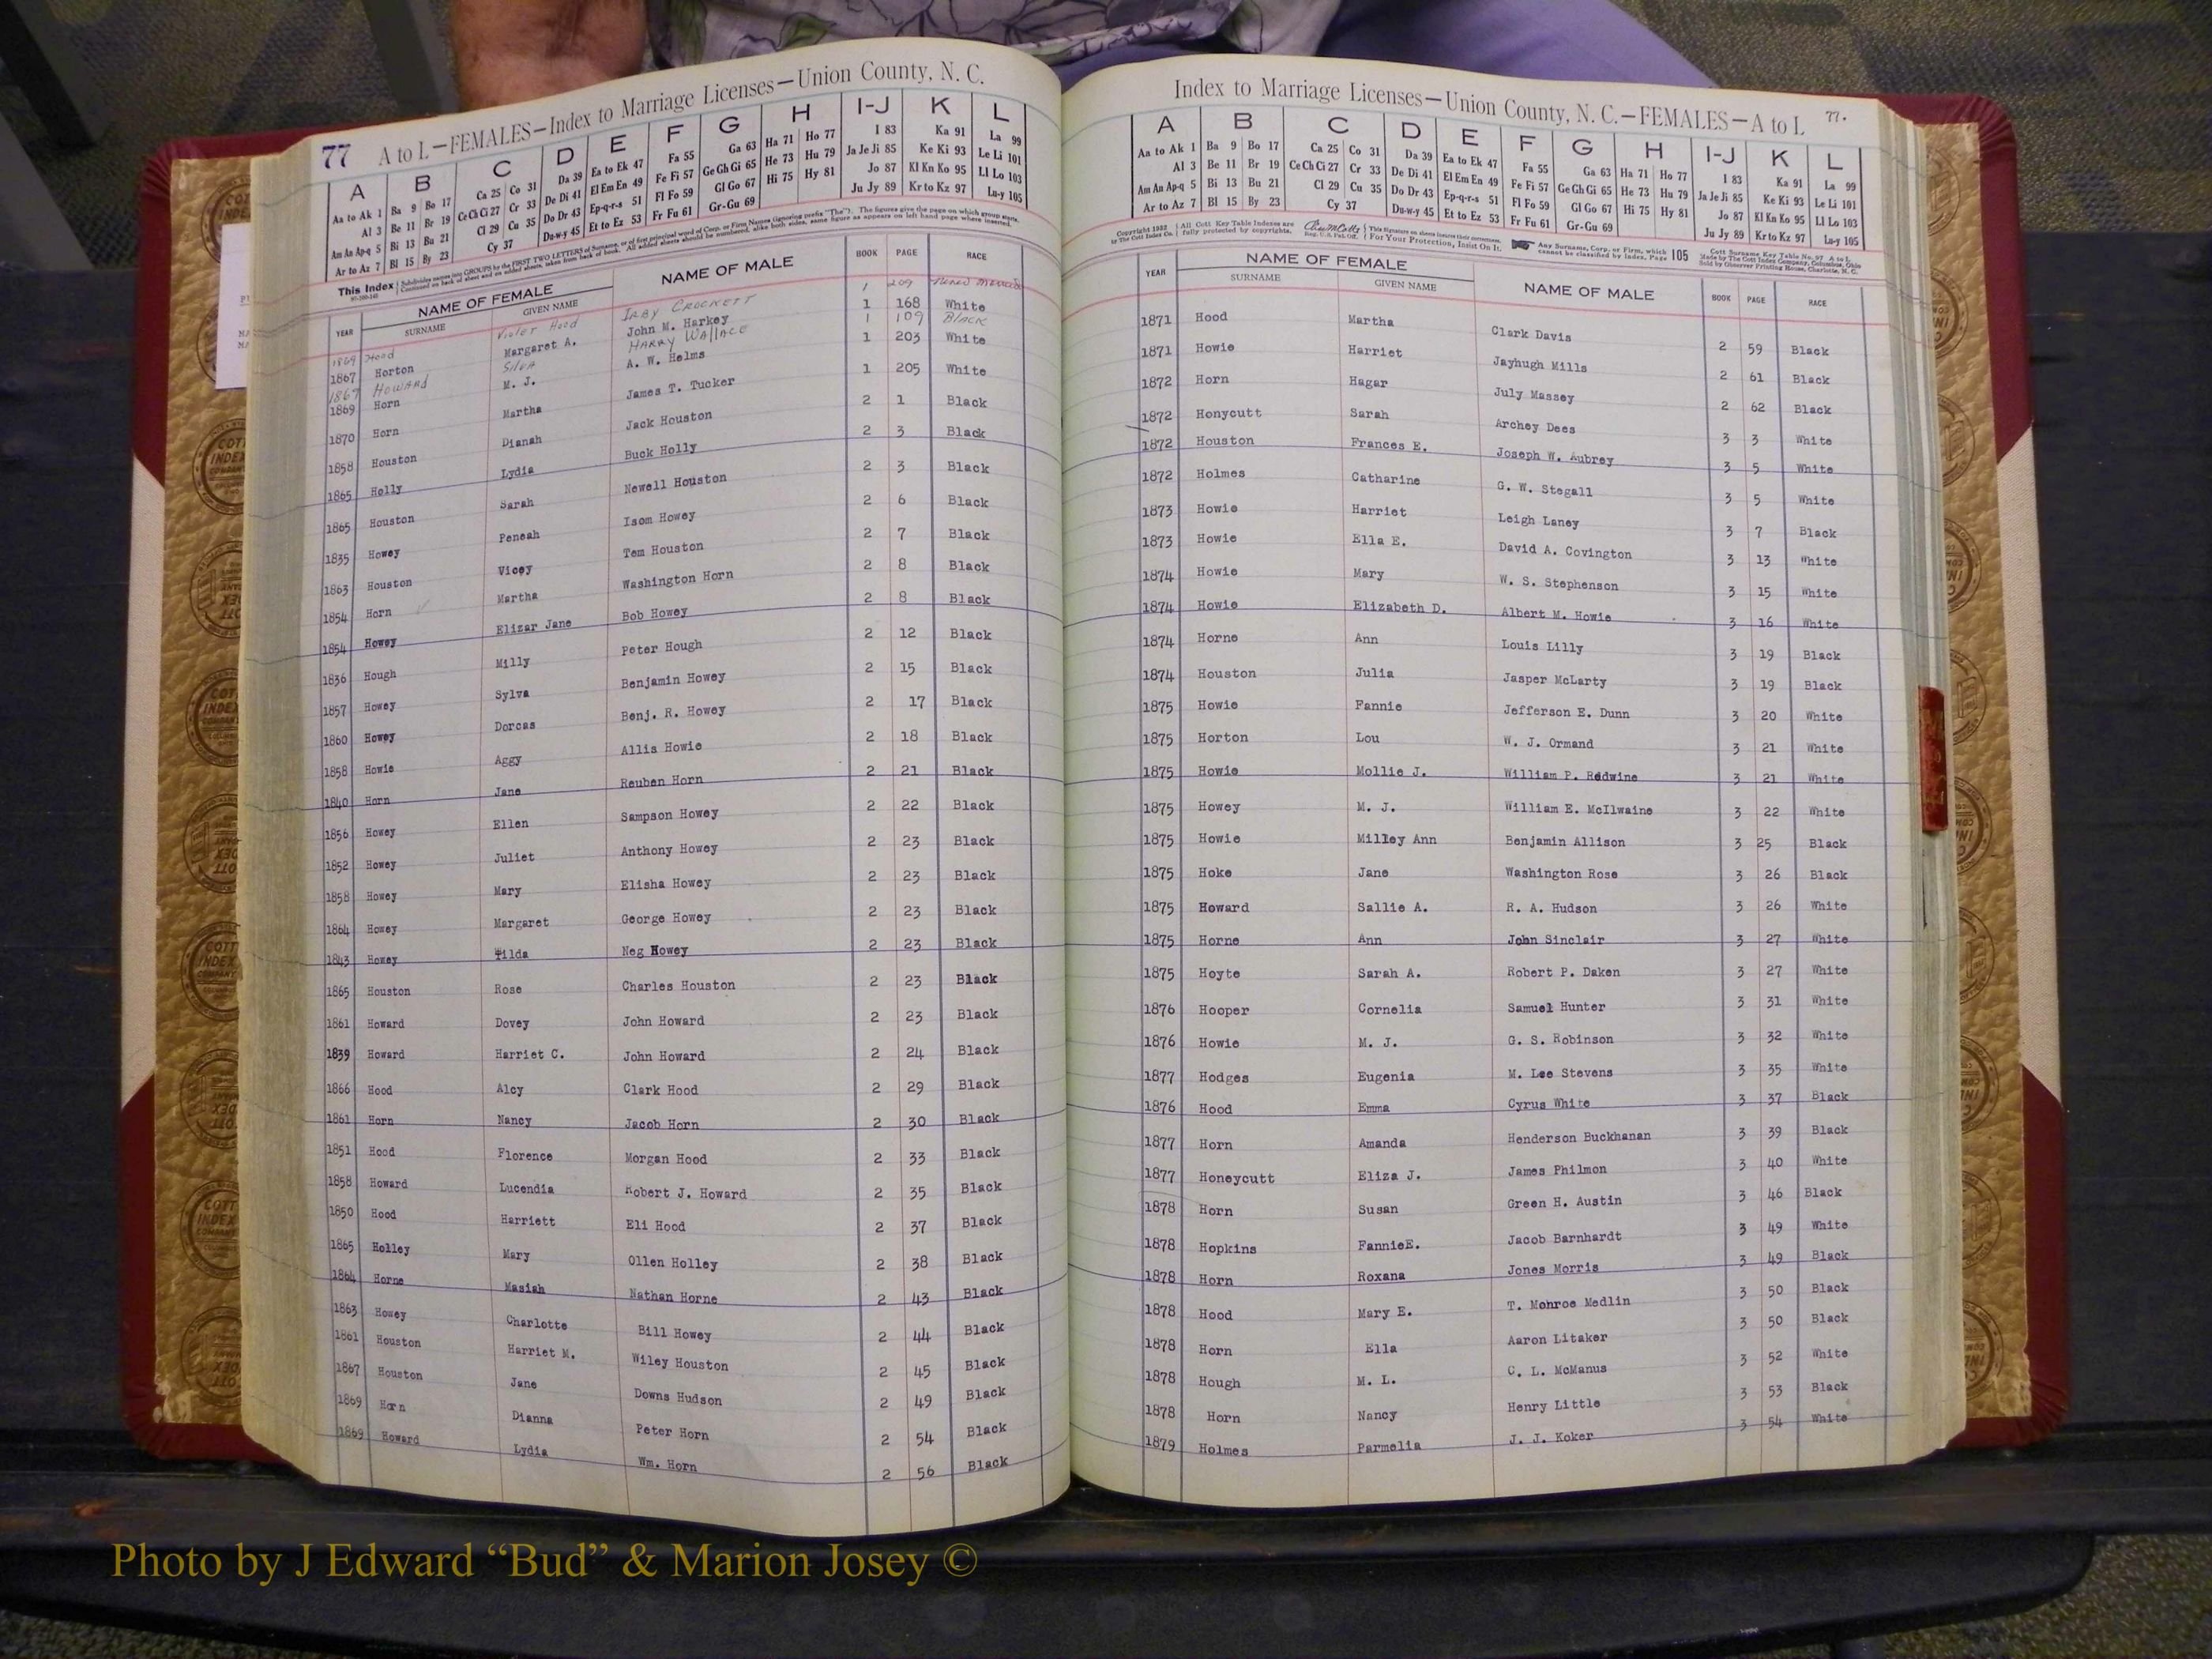 77 A to L—FEMALES—Index to Marriage Licenses—Union County, N. C.
A B C D E F G H I-J K L
Aa to Ak 1 Ba 9 Bo 17 Ca 25 Co 31 Da 39 Ea to Ek 47 Fa 55 Ga 63 Ha 71 Ho 77 I 83 Ka 91 La 99
Al 3 Be 11 Br 19 Ce Ch Ci 27 Cr 33 De Di 41 El Em En 49 Fe Fi 57 Ge Gh Gi 65 He 73 Hu 79 Ja Je Ji 85 Ke Ki 93 Le Li 101
Am An Ap-q 5 Bi 13 Bu 21 Cl 29 Cu 35 Do Dr 43 Ep-q-r-s 51 Fl Fo 59 Gl Go 67 Hi 75 Hy 81 Jo 87 Kl Kn Ko 95 Ll Lo 103
Ar to Az 7 Bl 15 By 23 Cy 37 Du-w-y 45 Et to Ez 53 Fr Fu 61 Gr-Gu 69 Ju Jy 89 Kr to Kz 97 Lu-y 105
This Index Subdivides names into GROUPS by the FIRST TWO LETTERS of Surname, or of first principal word of Corp. or Firm Names (ignoring prefix "The"). The figures give the page on which group starts.
Continued on back of sheet and on added sheets, taken from back of book. All added sheets should be numbered, alike both sides, same figure as appears on left hand page where inserted.
YEAR NAME OF FEMALE NAME OF MALE BOOK PAGE RACE
SURNAME GIVEN NAME
1869 Hood Violet Hood IRBY CROCKETT 1 209
1867 Horton Margaret A. John M. Harkey 1 168 White
1867 HOWARD Silva HARRY WALLACE 1 109 BLACK
1869 Horn M. J. A. W. Helms 1 203 White
1870 Horn Martha James T. Tucker 1 205 White
1858 Houston Dianah Jack Houston 2 1 Black
1865 Holly Lydia Buck Holly 2 3 Black
1865 Houston Sarah Newell Houston 2 3 Black
1835 Howey Peneah Isom Howey 2 6 Black
1863 Houston Vicey Tom Houston 2 7 Black
1854 Horn Martha Washington Horn 2 8 Black
1854 Howey Elizar Jane Bob Howey 2 8 Black
1836 Hough Milly Peter Hough 2 12 Black
1857 Howey Sylva Benjamin Howey 2 15 Black
1860 Howey Dorcas Benj. R. Howey 2 17 Black
1858 Howie Aggy Allis Howie 2 18 Black
1840 Horn Jane Reuben Horn 2 21 Black
1856 Howey Ellen Sampson Howey 2 22 Black
1852 Howey Juliet Anthony Howey 2 23 Black
1858 Howey Mary Elisha Howey 2 23 Black
1864 Howey Margaret George Howey 2 23 Black
1843 Howey Tilda Neg Howey 2 23 Black
1865 Houston Rose Charles Houston 2 23 Black
1861 Howard Dovey John Howard 2 23 Black
1839 Howard Harriet C. John Howard 2 24 Black
1866 Hood Alcy Clark Hood 2 29 Black
1861 Horn Nancy Jacob Horn 2 30 Black
1851 Hood Florence Morgan Hood 2 33 Black
1858 Howard Lucendia Robert J. Howard 2 35 Black
1850 Hood Harriett Eli Hood 2 37 Black
1865 Holley Mary Ollen Holley 2 38 Black
1864 Horne Masiah Nathan Horne 2 43 Black
1863 Howey Charlotte Bill Howey 2 44 Black
1861 Houston Harriet M. Wiley Houston 2 45 Black
1867 Houston Jane Downs Hudson 2 49 Black
1869 Horn Dianna Peter Horn 2 54 Black
1869 Howard Lydia Wm. Horn 2 56 Black
Index to Marriage Licenses—Union County, N. C.—FEMALES—A to L 77.
A B C D E F G H I-J K L
Aa to Ak 1 Ba 9 Bo 17 Ca 25 Co 31 Da 39 Ea to Ek 47 Fa 55 Ga 63 Ha 71 Ho 77 I 83 Ka 91 La 99
Al 3 Be 11 Br 19 Ce Ch Ci 27 Cr 33 De Di 41 El Em En 49 Fe Fi 57 Ge Gh Gi 65 He 73 Hu 79 Ja Je Ji 85 Ke Ki 93 Le Li 101
Am An Ap-q 5 Bi 13 Bu 21 Cl 29 Cu 35 Do Dr 43 Ep-q-r-s 51 Fl Fo 59 Gl Go 67 Hi 75 Hy 81 Jo 87 Kl Kn Ko 95 Ll Lo 103
Ar to Az 7 Bl 15 By 23 Cy 37 Du-w-y 45 Et to Ez 53 Fr Fu 61 Gr-Gu 69 Ju Jy 89 Kr to Kz 97 Lu-y 105
Any Surname, Corp. or Firm, which cannot be classified by Index, Page 105
YEAR NAME OF FEMALE NAME OF MALE BOOK PAGE RACE
SURNAME GIVEN NAME
1871 Hood Martha Clark Davis 2 59 Black
1871 Howie Harriet Jayhugh Mills 2 61 Black
1872 Horn Hagar July Massey 2 62 Black
1872 Honycutt Sarah Archey Dees 3 3 White
1872 Houston Frances E. Joseph W. Aubrey 3 5 White
1872 Holmes Catharine G. W. Stegall 3 5 White
1873 Howie Harriet Leigh Laney 3 7 Black
1873 Howie Ella E. David A. Covington 3 13 White
1874 Howie Mary W. S. Stephenson 3 15 White
1874 Howie Elizabeth D. Albert M. Howie 3 16 White
1874 Horne Ann Louis Lilly 3 19 Black
1874 Houston Julia Jasper McLarty 3 19 Black
1875 Howie Fannie Jefferson E. Dunn 3 20 White
1875 Horton Lou W. J. Ormand 3 21 White
1875 Howie Mollie J. William P. Redwine 3 21 White
1875 Howey M. J. William E. McIlwaine 3 22 White
1875 Howie Milley Ann Benjamin Allison 3 25 Black
1875 Hoke Jane Washington Rose 3 26 Black
1875 Howard Sallie A. R. A. Hudson 3 26 White
1875 Horne Ann John Sinclair 3 27 White
1875 Hoyte Sarah A. Robert P. Daken 3 27 White
1876 Hooper Cornelia Samuel Hunter 3 31 White
1876 Howie M. J. G. S. Robinson 3 32 White
1877 Hodges Eugenia M. Lee Stevens 3 35 White
1876 Hood Emma Cyrus White 3 37 Black
1877 Horn Amanda Henderson Buckhanan 3 39 Black
1877 Honeycutt Eliza J. James Philmon 3 40 White
1878 Horn Susan Green H. Austin 3 46 Black
1878 Hopkins FannieE. Jacob Barnhardt 3 49 White
1878 Horn Roxana Jones Morris 3 49 Black
1878 Hood Mary E. T. Monroe Medlin 3 50 Black
1878 Horn Ella Aaron Litaker 3 50 Black
1878 Hough M. L. C. L. McManus 3 52 White
1878 Horn Nancy Henry Little 3 53 Black
1879 Holmes Parmelia J. J. Koker 3 54 White
Photo by J Edward “Bud” & Marion Josey ©